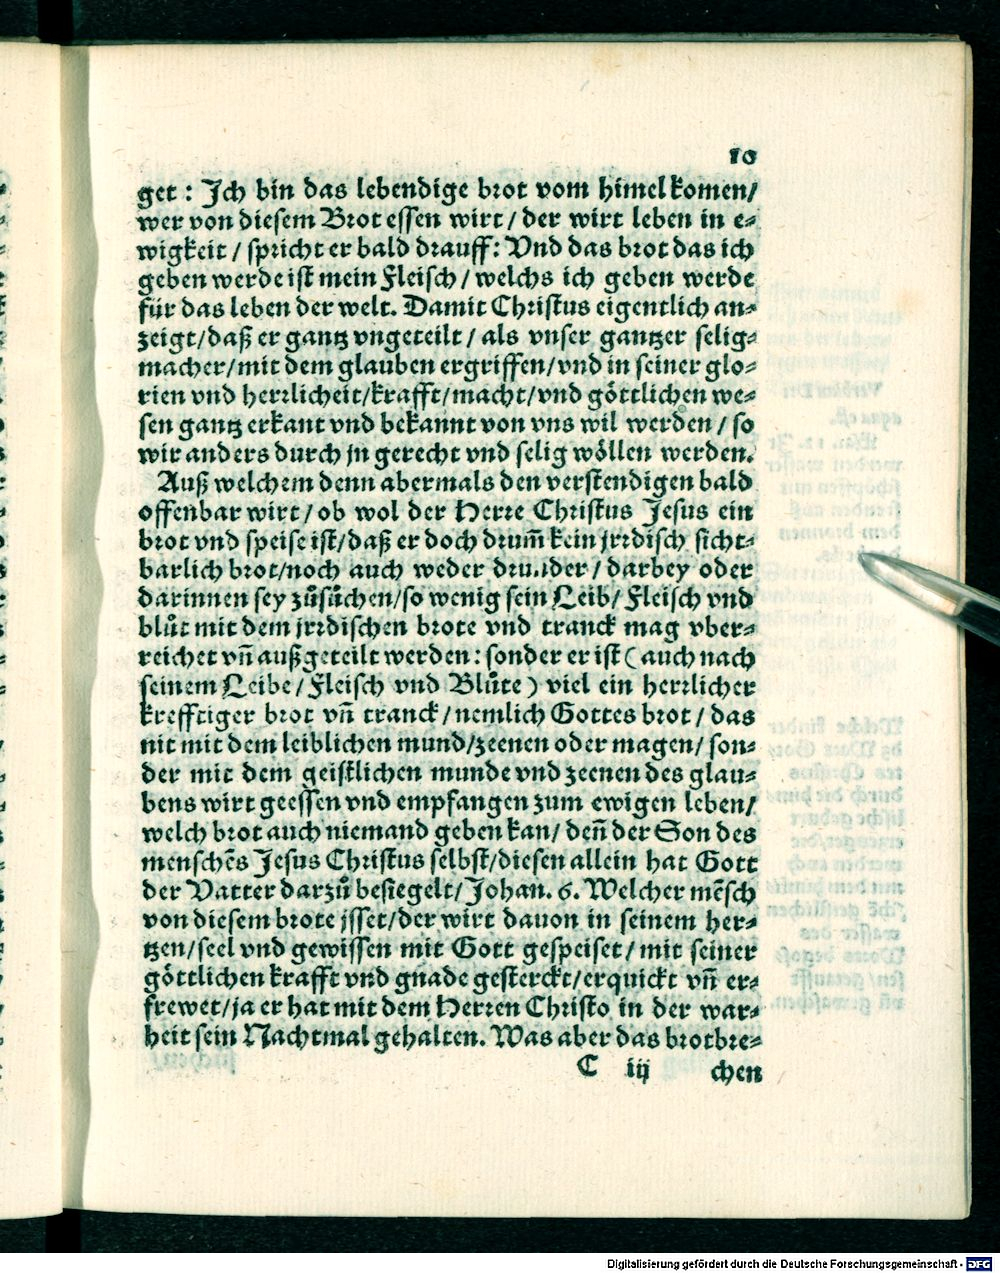 10
get: Ich bin das lebendige brot vom himel komen/
wer von diesem Brot essen wirt/ der wirt leben in e⸗
wigkeit/ spricht er bald drauff: Vnd das brot das ich
geben werde ist mein Fleisch/ welchs ich geben werde
für das leben der welt. Damit Christus eigentlich an⸗
zeigt/ daß er gantz vngeteilt/ als vnser gantzer selig⸗
macher/ mit dem glauben ergriffen/ vnd in seiner glo⸗
rien vnd herrlicheit/ krafft/ macht/ vnd göttlichen we⸗
sen gantz erkant vnd bekannt von vns wil werden/ so
wir anders durch jn gerecht vnd selig wöllen werden.
Auß welchem denn abermals den verstendigen bald
offenbar wirt/ ob wol der Herre Christus Jesus ein
brot vnd speise ist/ daß er doch drum̃ kein jrrdisch sicht⸗
barlich brot/ noch auch weder drunder/ darbey oder
darinnen sey zůsůchen/ so wenig sein Leib/ Fleisch vnd
blůt mit dem jrrdischen brote vnd tranck mag vber⸗
reichet vñ außgeteilt werden: sonder er ist (auch nach
seinem Leibe/ Fleisch vnd Blůte) viel ein herrlicher
krefftiger brot vñ tranck/ nemlich Gottes brot/ das
nit mit dem leiblichen mund/ zeenen oder magen/ son⸗
der mit dem geistlichen munde vnd zeenen des glau⸗
bens wirt geessen vnd empfangen zum ewigen leben/
welch brot auch niemand geben kan/ deñ der Son des
menschẽs Jesus Christus selbst/ diesen allein hat Gott
der Vatter darzů besiegelt/ Johan. 6. Welcher mẽsch
von diesem brote jsset/ der wirt dauon in seinem her⸗
tzen/ seel vnd gewissen mit Gott gespeiset/ mit seiner
göttlichen krafft vnd gnade gesterckt/ erquickt vñ er⸗
frewet/ ja er hat mit dem Herren Christo in der war⸗
heit sein Nachtmal gehalten. Was aber das brotbre⸗
C iij chen
Digitalisierung gefördert durch die Deutsche Forschungsgemeinschaft - DFG